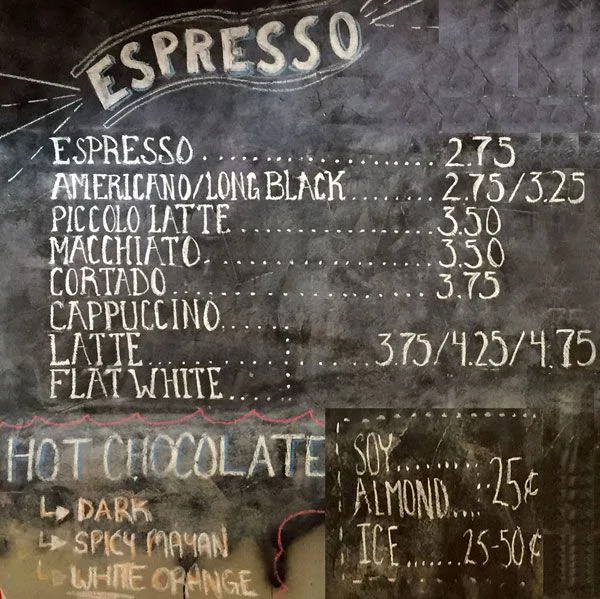 ESPRESSO
ESPRESSO . . . . . . . . . . . . . . . . . . 2.75
AMERICANO/LONG BLACK . . . . . . . . 2.75/3.25
PICCOLO LATTE . . . . . . . . . . . . . . . . 3.50
MACCHIATO . . . . . . . . . . . . . . . . . . 3.50
CORTADO . . . . . . . . . . . . . . . . . . . . 3.75
CAPPUCCINO . . . . .
LATTE . . . . . . . . . . . . . . . . . . 3.75/4.25/4.75
FLAT WHITE . . . .
HOT CHOCOLATE
↳ DARK
↳ SPICY MAYAN
↳ WHITE ORANGE
SOY . . . . . . . .
ALMOND . . . . . . 25¢
ICE . . . . . . 25-50¢